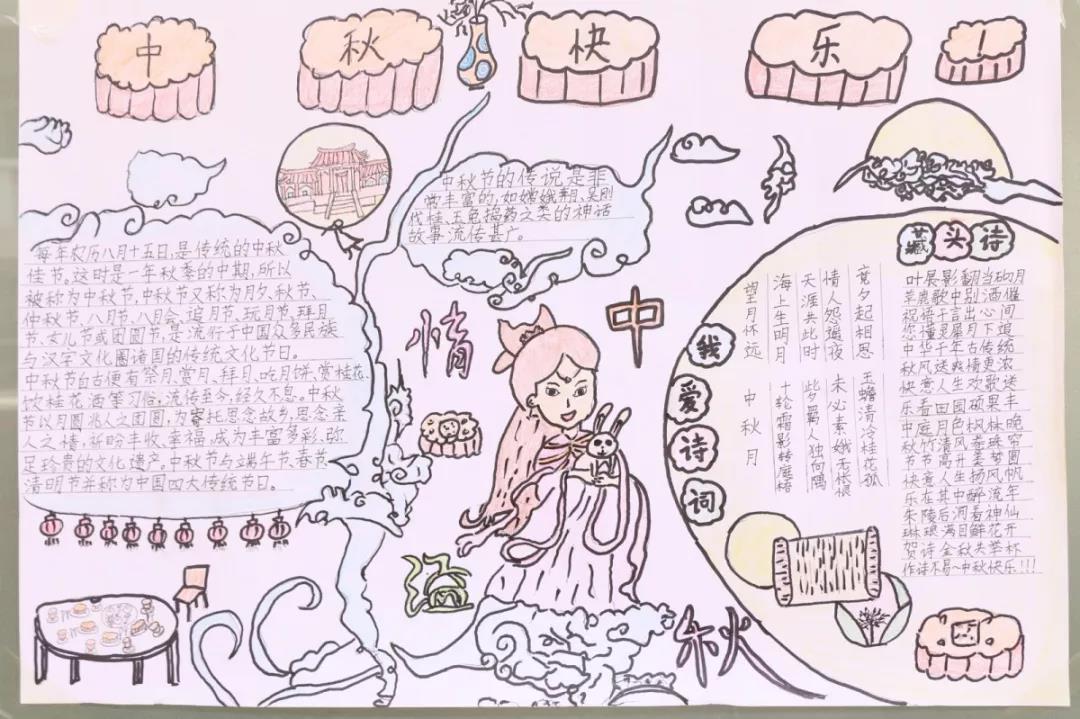 中秋快乐!
每年农历八月十五日,是传统的中秋
佳节。这时是一年秋季的中期,所以
被称为中秋节,中秋节又称为月夕、秋节、
仲秋节、八月节、八月会、追月节、玩月节、拜月
节、女儿节或团圆节,是流行于中国众多民族
与汉字文化圈诸国的传统文化节日。
中秋节自古便有祭月、赏月、拜月、吃月饼、赏桂花、
饮桂花酒等习俗,流传至今,经久不息。中秋
节以月圆兆人之团圆,为寄托思念故乡,思念亲
人之情,祈盼丰收、幸福,成为丰富多彩、弥
足珍贵的文化遗产。中秋节与端午节、春节、
清明节并称为中国四大传统节日。
中秋节的传说是非
常丰富的,如嫦娥、吴刚
伐桂、玉兔捣药之类的神话
故事流传甚广。
情
中
溢
秋
我爱诗词
望月怀远
海上生明月
天涯共此时
情人怨遥夜
竟夕起相思
中秋月
十轮霜影转庭梧
此夕羁人独向隅
未必素娥无怅恨
玉蟾清冷桂花孤
藏头诗
叶展影翻当砌月
鹿歌中别洒催
祝语千言出心间
您懂灵犀月下追
中华千年古传统
秋风送爽情更浓
快意人生欢歌送
乐看田园硕果丰
中庭月色枫林晚
秋竹清风叠珠帘
节节高升美梦圆
快意人生扬风帆
乐在其中醉流年
朱陵后洞看神仙
琳琅满目鲜花开
贺诗金秋共举杯
作诗不易~中秋快乐!!!